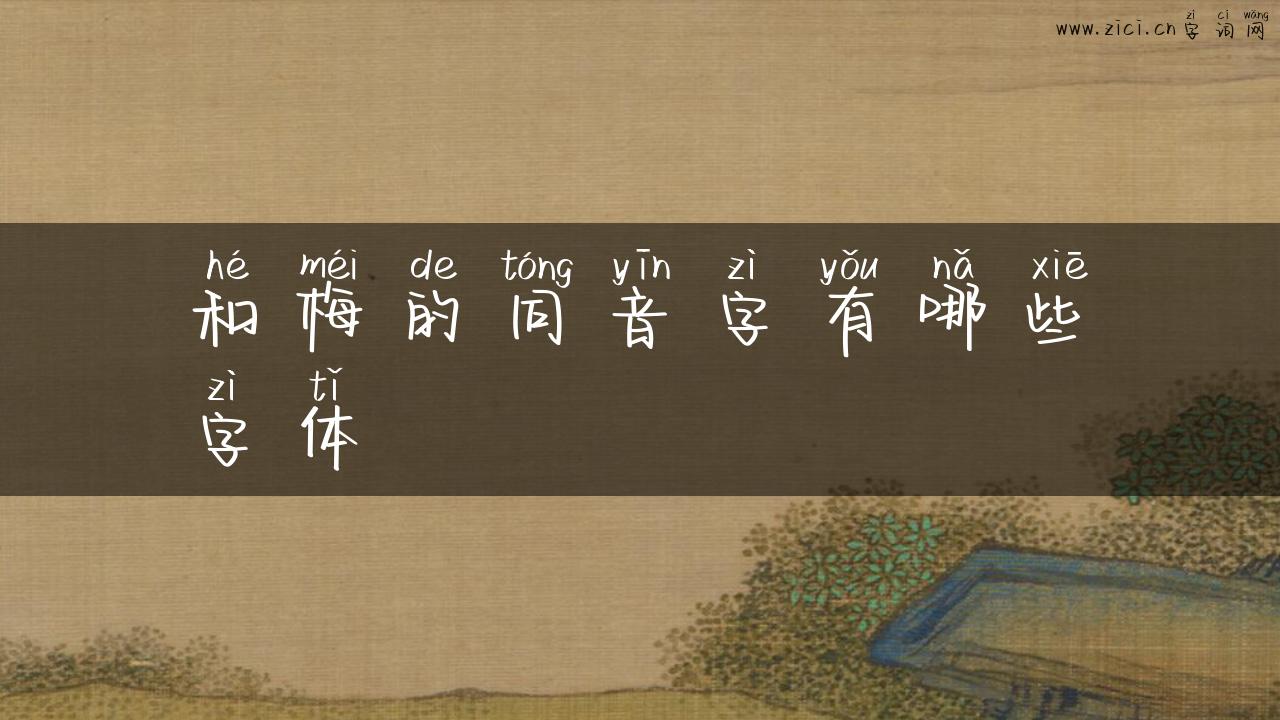 zì cí wǎng
www.zici.cn 字 词 网
hé méi de tóng yīn zì yǒu nǎ xiē
和 梅 的 同 音 字 有 哪 些
zì tǐ
字 体